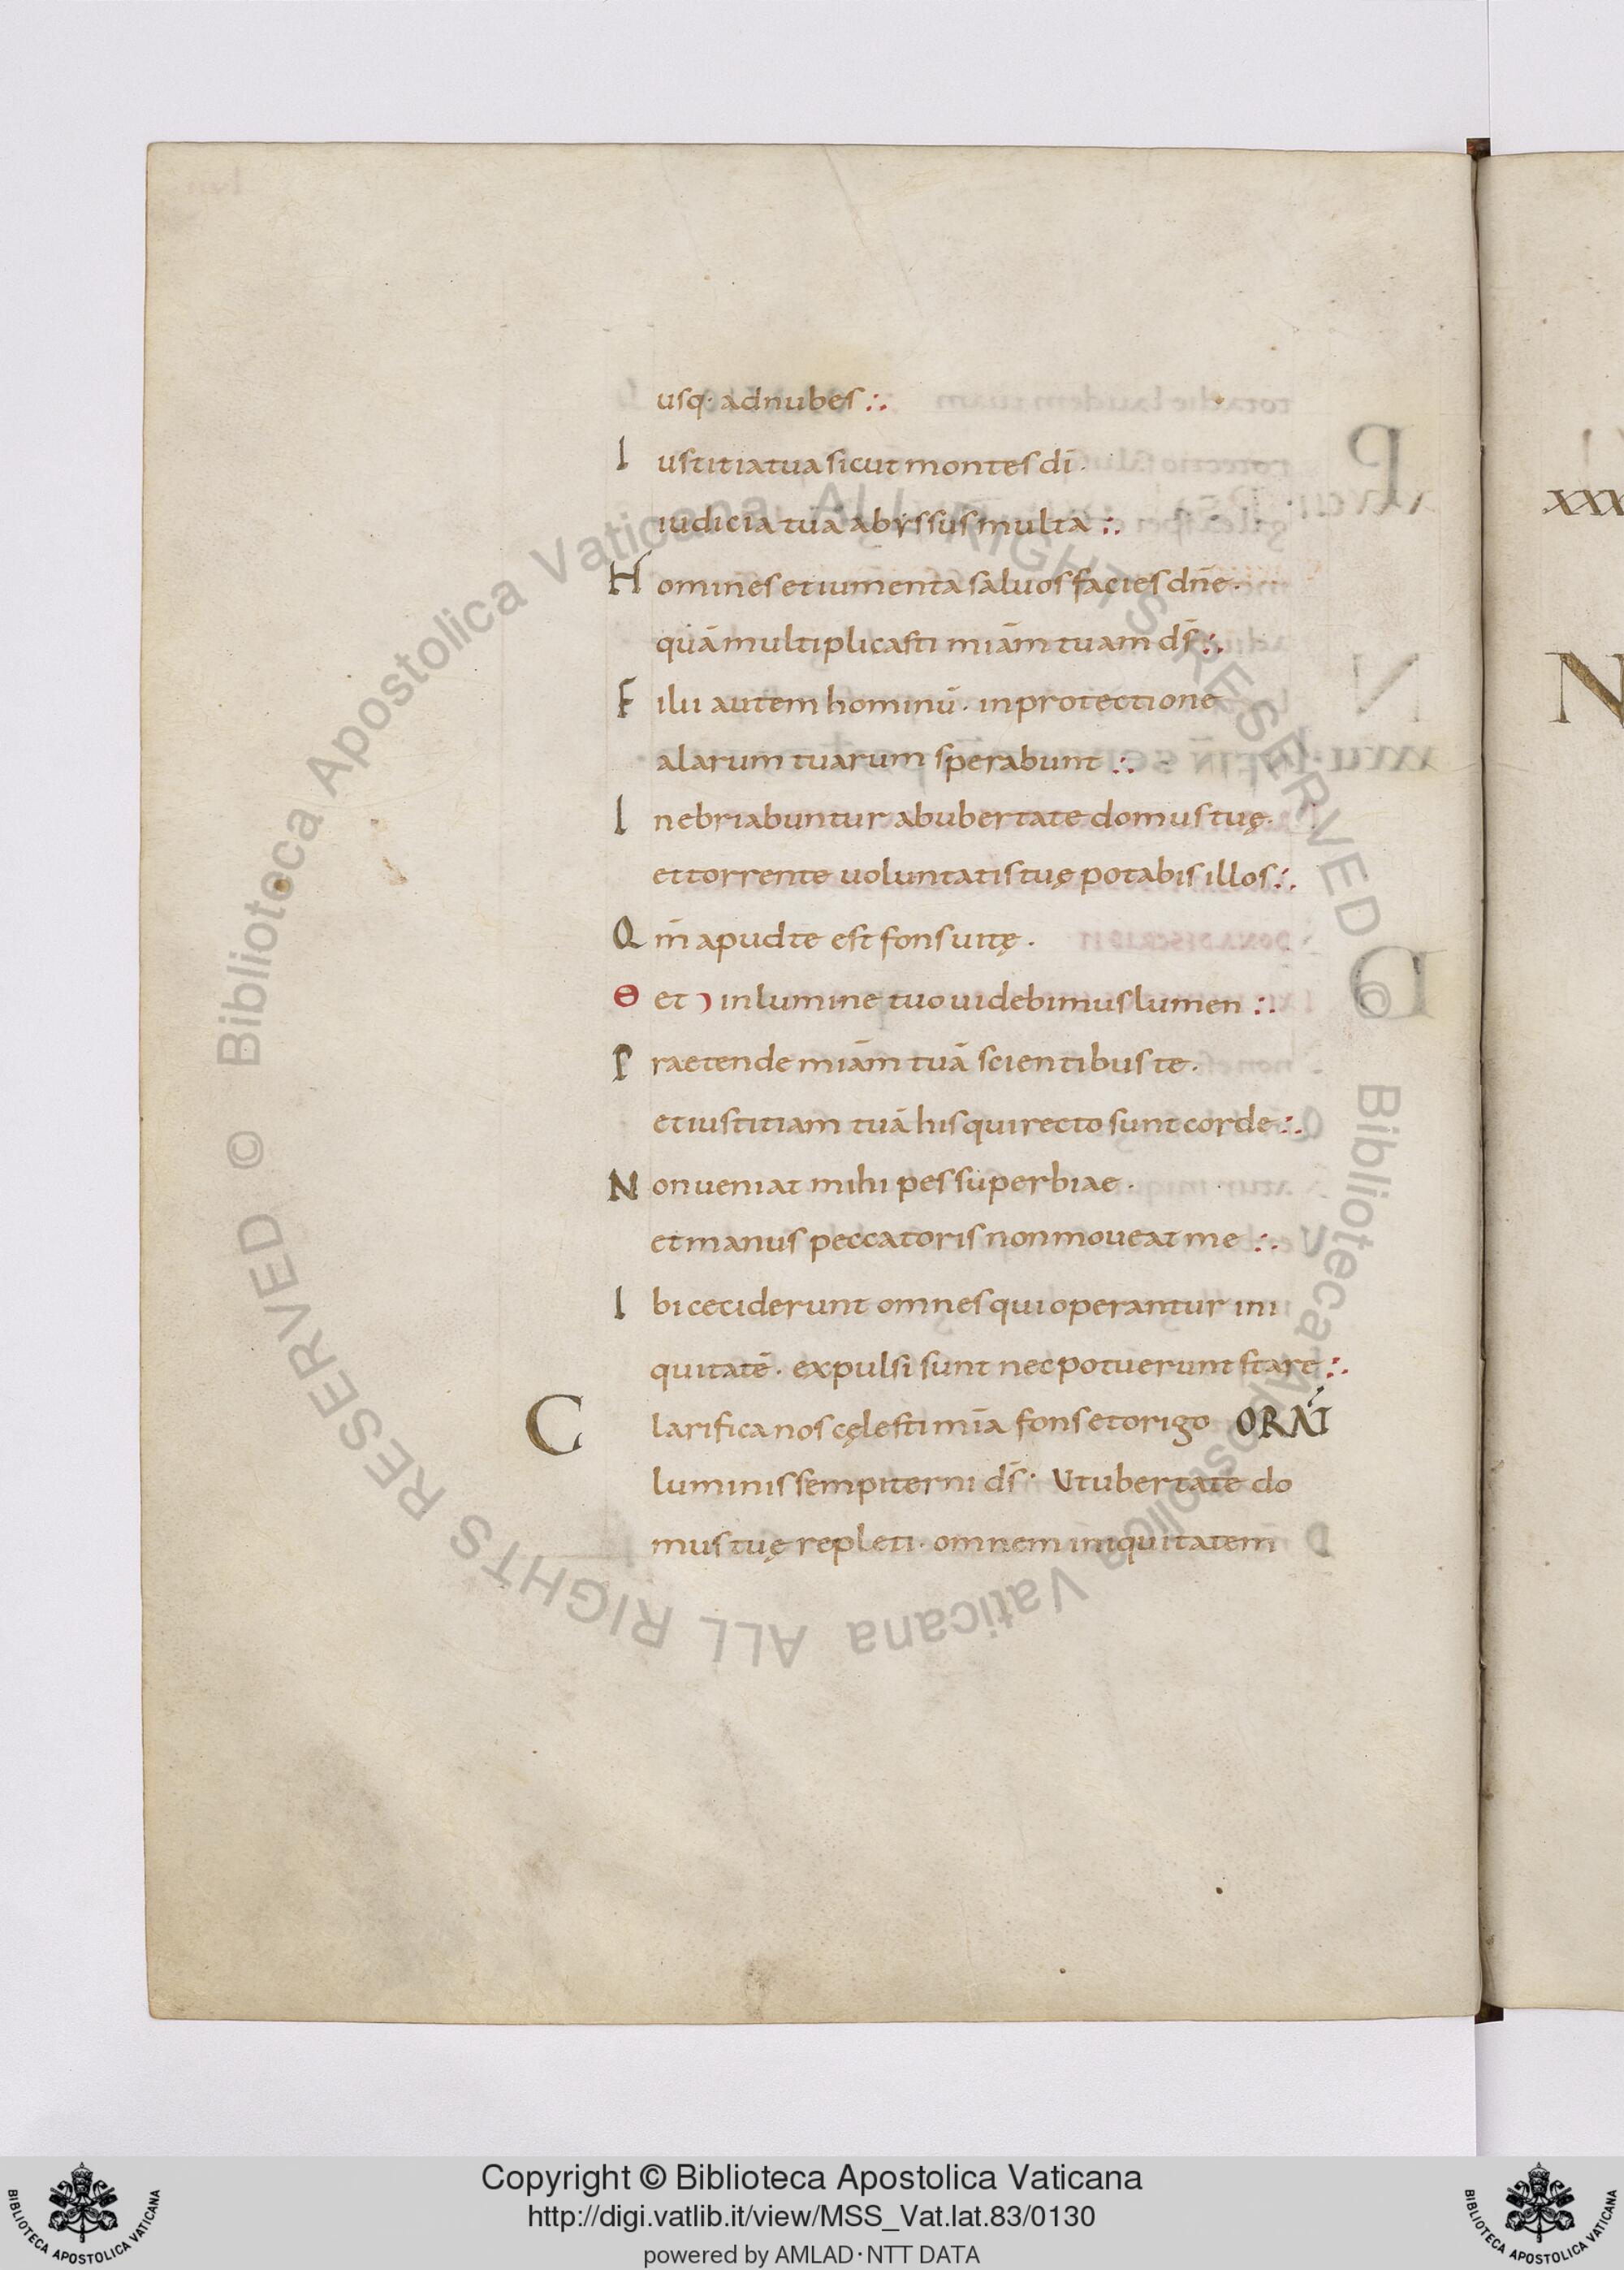 usq· ad nubes :.
I ustitia tua sicut montes dī ·
iudicia tua abyssus multa :.
H omines et iumenta saluos facies dn̄e ·
quā multiplicasti miām tuam ds̄ :.
F ilii autem hominū · in protectione
alarum tuarum sperabunt :.
I nebriabuntur ab ubertate domus tuę ·
et torrente uoluntatis tuę potabis illos :.
Q m̄ apud te est fons uitę ·
Ɵ et ) in lumine tuo uidebimus lumen :.
P raetende miām tuā scientibus te ·
et iustitiam tuā his qui recto sunt corde :.
N on ueniat mihi pes superbiae ·
et manus peccatoris non moueat me :.
I bi ceciderunt omnes qui operantur ini
quitatē · expulsi sunt nec potuerunt stare :.
C larifica nos cęlesti mīa fons et origo ORAT̄
luminis sempiterni ds̄ · Ut ubertate do
mus tuę repleti · omnem iniquitatem
XXX
N
Biblioteca Apostolica Vaticana ALL RIGHTS RESERVED ©
Biblioteca Apostolica Vaticana ALL RIGHTS RESERVED ©
Copyright © Biblioteca Apostolica Vaticana
http://digi.vatlib.it/view/MSS_Vat.lat.83/0130
powered by AMLAD·NTT DATA
BIBLIOTECA APOSTOLICA VATICANA
BIBLIOTECA APOSTOLICA VATICANA